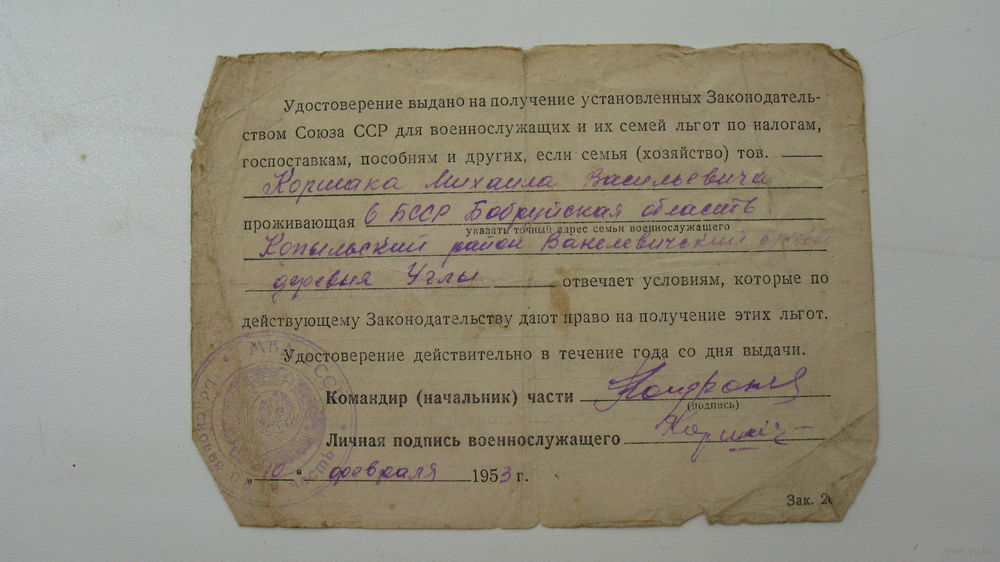 Удостоверение выдано на получение установленных Законодатель-
ством Союза ССР для военнослужащих и их семей льгот по налогам,
госпоставкам, пособиям и других, если семья (хозяйство) тов.
Коршака Михаила Васильевича
проживающая в БССР Бобруйская область
указать точный адрес семьи военнослужащего
Копыльский район Ванелевичский
деревня Углы отвечает условиям, которые по
действующему Законодательству дают право на получение этих льгот.
Удостоверение действительно в течение года со дня выдачи.
Командир (начальник) части
(подпись)
Личная подпись военнослужащего
„10“ февраля 1953 г.
Зак.
МВД СССР
часть
www.ay.by